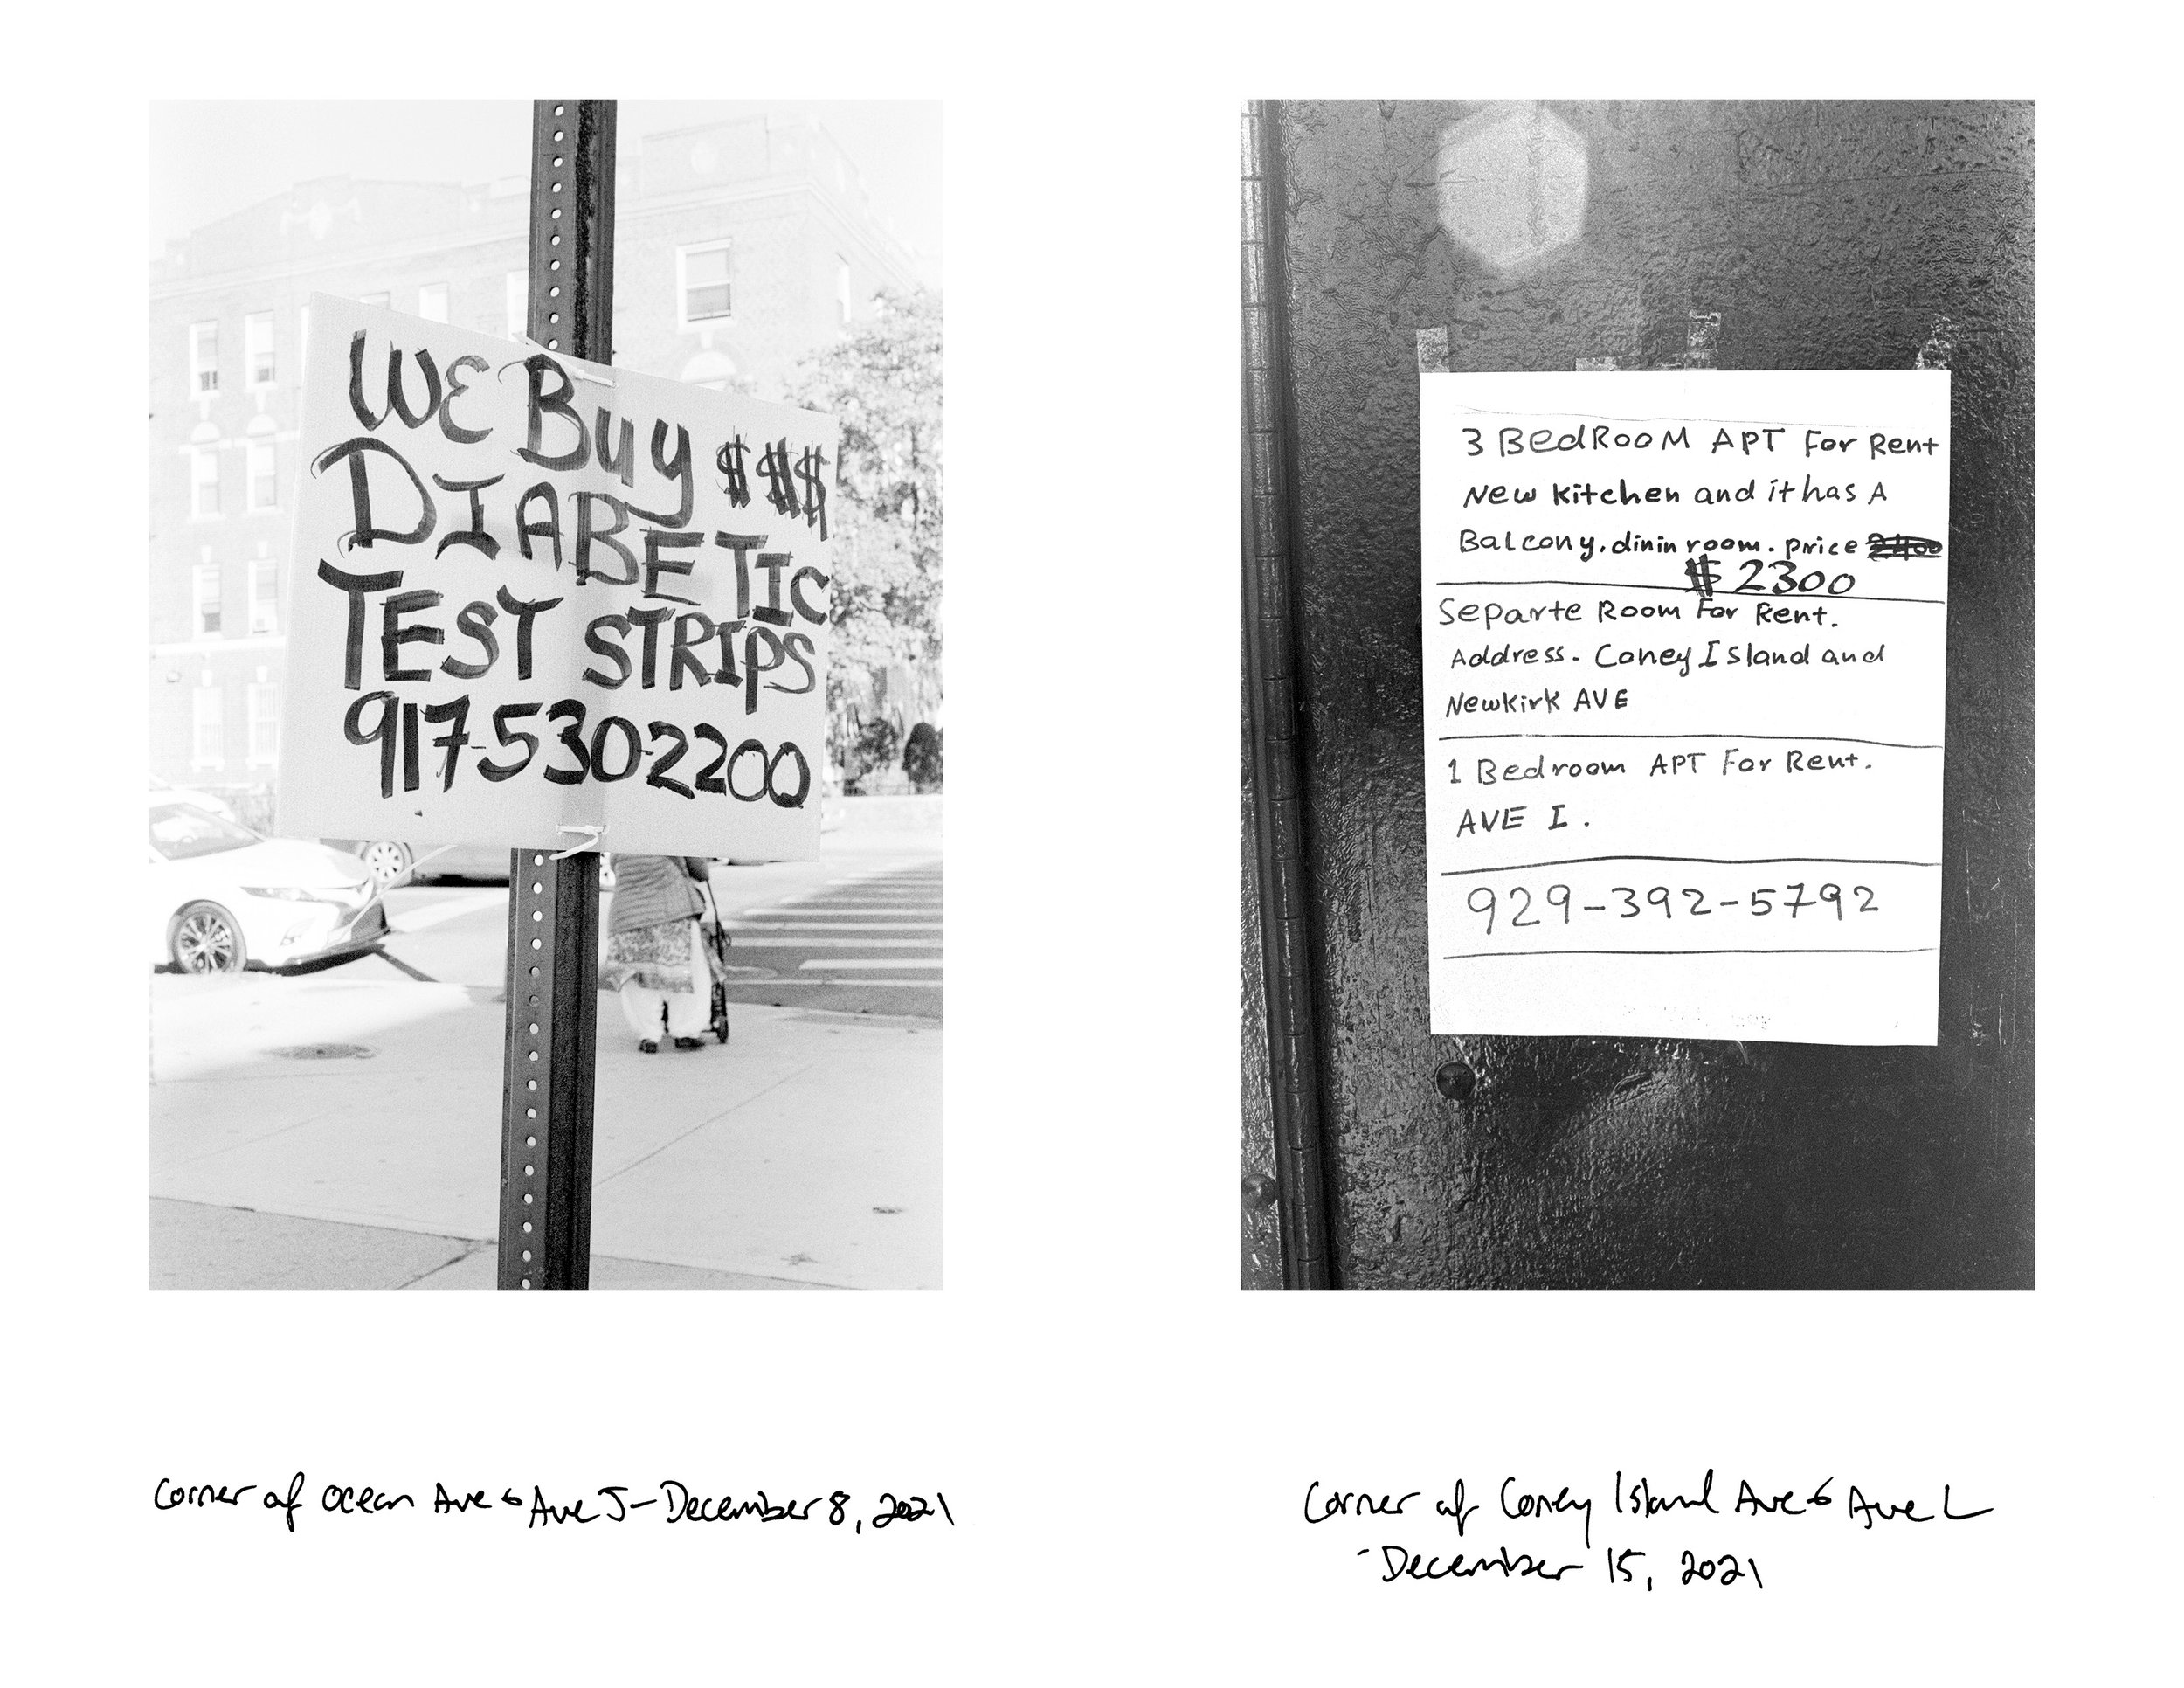 WE Buy $$$
DIABETIC
TEST STRIPS
917-530-2200
3 BedRooM APT For Rent
New Kitchen and it has A
Balcony. dinin room. price 2400
$ 2300
Separte Room For Rent.
Address- Coney Island and
Newkirk AVE
1 Bedroom APT For Rent.
AVE I.
929-392-5792
Corner of Ocean Ave & Ave J - December 8, 2021
Corner of Coney Island Ave & Ave L
- December 15, 2021